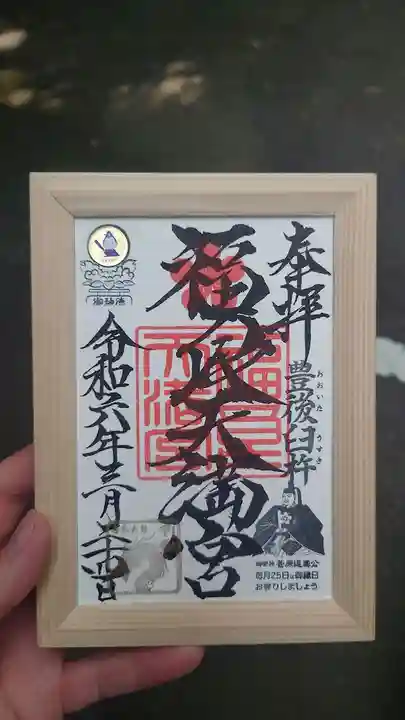 奉拝
豊後臼杵
おおいた うすき
福良天満宮
福良
天満宮
令和六年三月二十四日
御神徳
御祭神 菅原道真公
毎月25日は御縁日
お参りしましょう